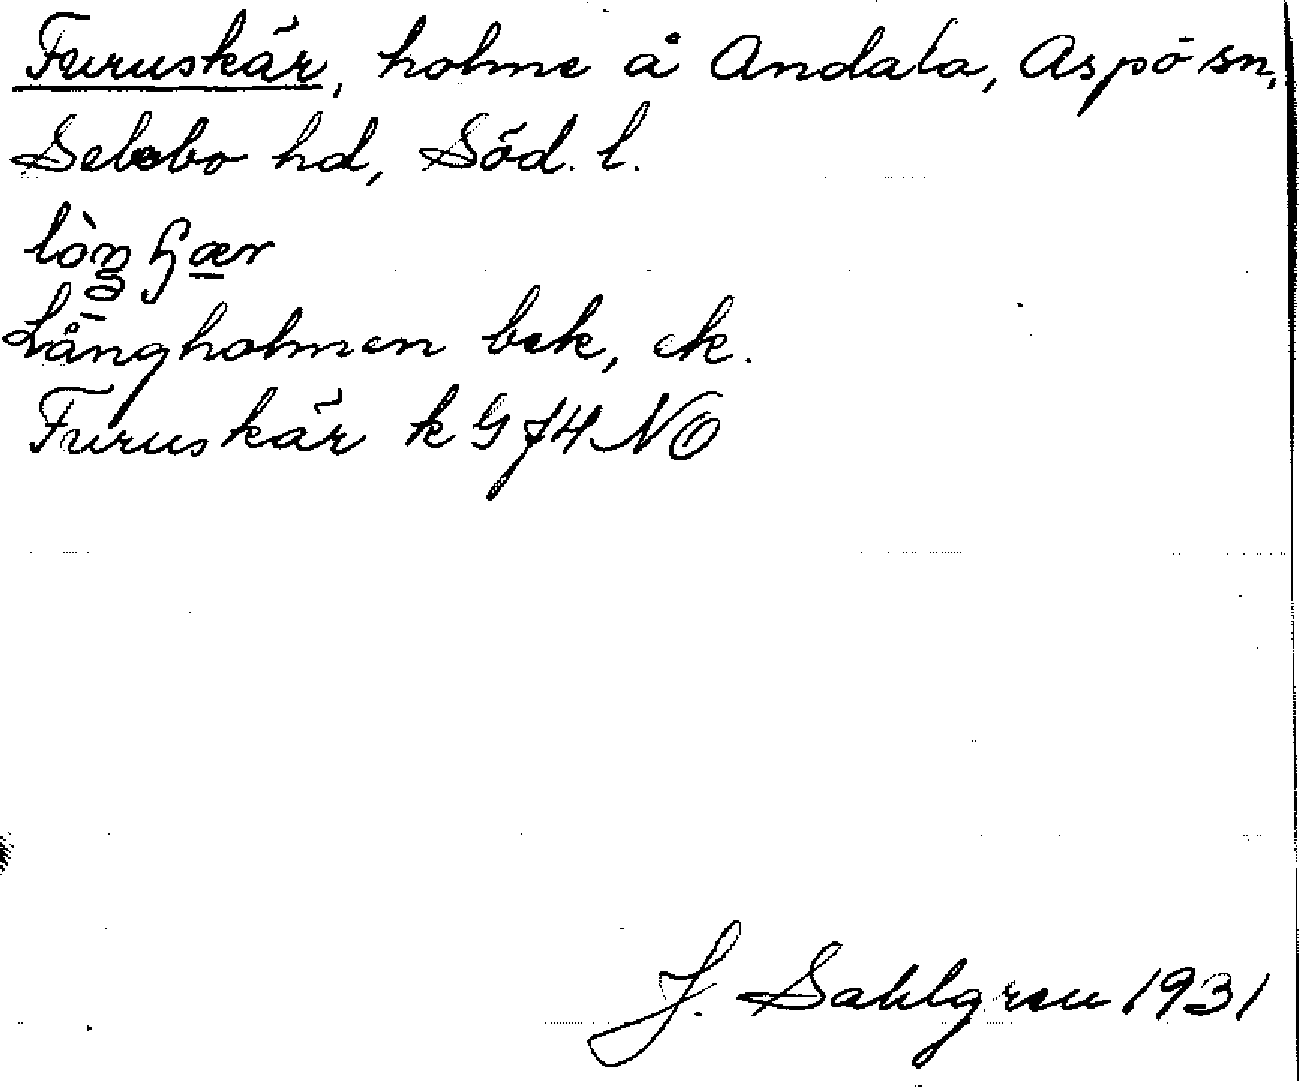 Furuskär, holme å Andala, Aspö sn,
Selebo hd, Söd. l.
Långholmen bek, ek.
Furuskär k G 74 NO
J. Sahlgren 1931